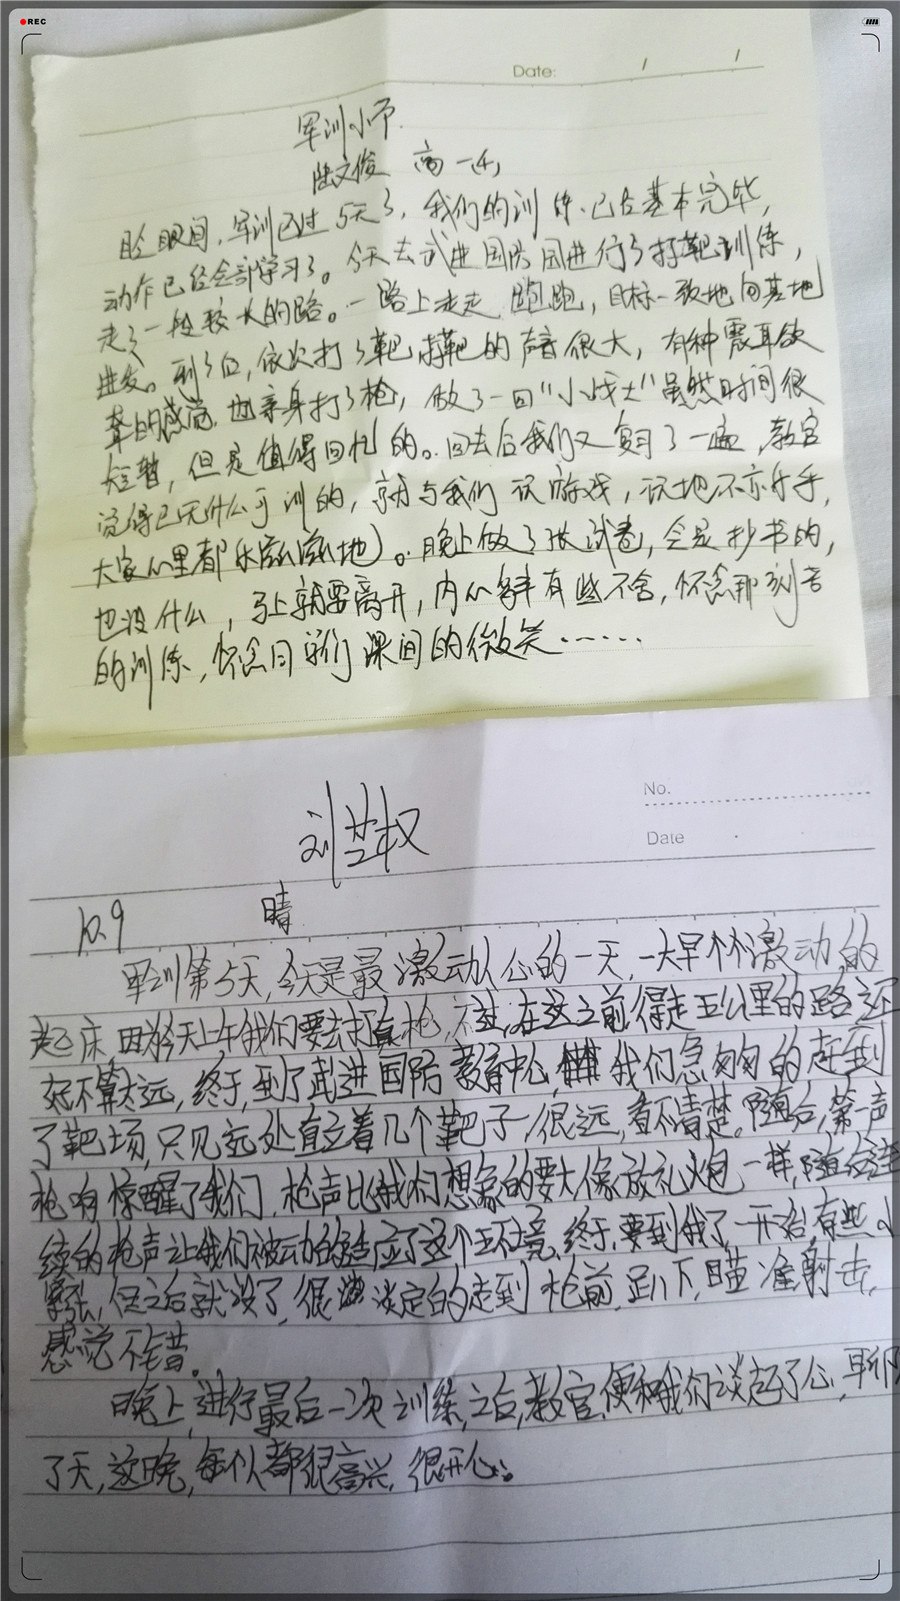 REC
Date: / /
军训小节
陆文俊 高一(4)
眨眼间,军训已过5天了,我们的训练已经基本完毕,
动作已经全部学习了。今天去武进国防园进行了打靶训练,
走了一段较长的路。一路上走走跑跑,目标一致地向基地
进发。到了后,依次打了靶,打靶的声音很大,有种震耳欲
聋的感觉。也亲身打了枪,做了一回“小战士”虽然时间很
短暂,但是值得回忆的。回去后我们又复习了一遍,教官
觉得已无什么可训的,就与我们玩游戏,玩地不亦乐乎,
大家心里都乐滋滋地)。晚上做了张试卷,全是抄书的,
也没什么,马上就要离开,内心多半有些不舍,怀念那刻苦
的训练,怀念同学们课间的微笑……
No.
刘楚权
Date
10.9 晴
军训第5天,今天是最激动人心的一天,一大早怀激动的
起床,因为今天上午我们要去打真枪,不过,在这之前得走五公里的路还
好不算太远,终于,到了武进国防教育中心,我们急匆匆的赶到
了靶场,只见远处直立着几个靶子,很远,看不清楚。随后,第一声
枪响惊醒了我们,枪声比我们想象的要大,像放礼炮一样,随后连
续的枪声让我们被动的适应了这个环境,终于,要到我了,一开始,有些小
紧张,但之后就没了,很淡定的走到枪前,趴下,瞄准射击,
感觉不错。
晚上,进行最后一次训练,之后,教官便和我们谈起了心,聊
了天,这晚,每个人都很高兴,很开心。